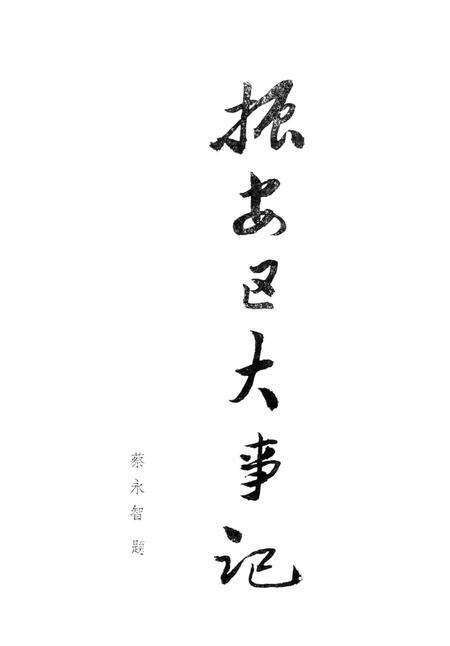 振安区大事记
蔡永智 题